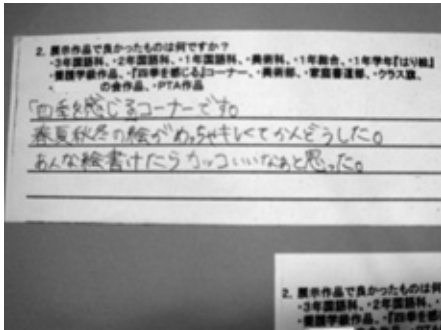 2. 展示作品で良かったものは何ですか？
・3年国語科、・2年国語科、・1年国語科、・美術科、・1年総合、・1年学年『はり絵』
・養護学級作品、・『四季を感じる』コーナー、・美術部、・家庭書道部、・クラス旗、
・の会作品、・PTA作品
「四季を感じるコーナーです。
春夏秋冬の絵がめっちゃキレくてかんどうした。
あんな絵書けたらカッコいいなぁと思った。
2. 展示作品で良かったものは何
・3年国語科、・2年国語科、・
・養護学級作品、・『四季を感じ